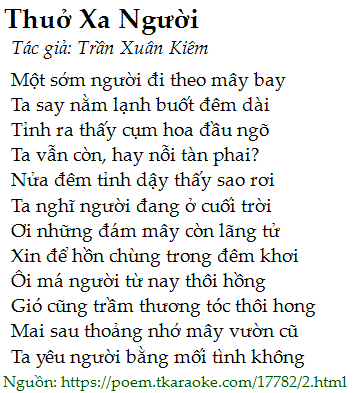 Thuở Xa Người
Tác giả: Trần Xuân Kiêm
Một sớm người đi theo mây bay
Ta say nằm lạnh buốt đêm dài
Tỉnh ra thấy cụm hoa đầu ngõ
Ta vẫn còn, hay nỗi tàn phai?
Nửa đêm tỉnh dậy thấy sao rơi
Ta nghĩ người đang ở cuối trời
Ơi những đám mây còn lãng tử
Xin để hồn chùng trong đêm khơi
Ôi má người từ nay thôi hồng
Gió cũng trầm thương tóc thôi hong
Mai sau thoảng nhớ mây vườn cũ
Ta yêu người bằng mối tình không
Nguồn: https://poem.tkaraoke.com/17782/2.html